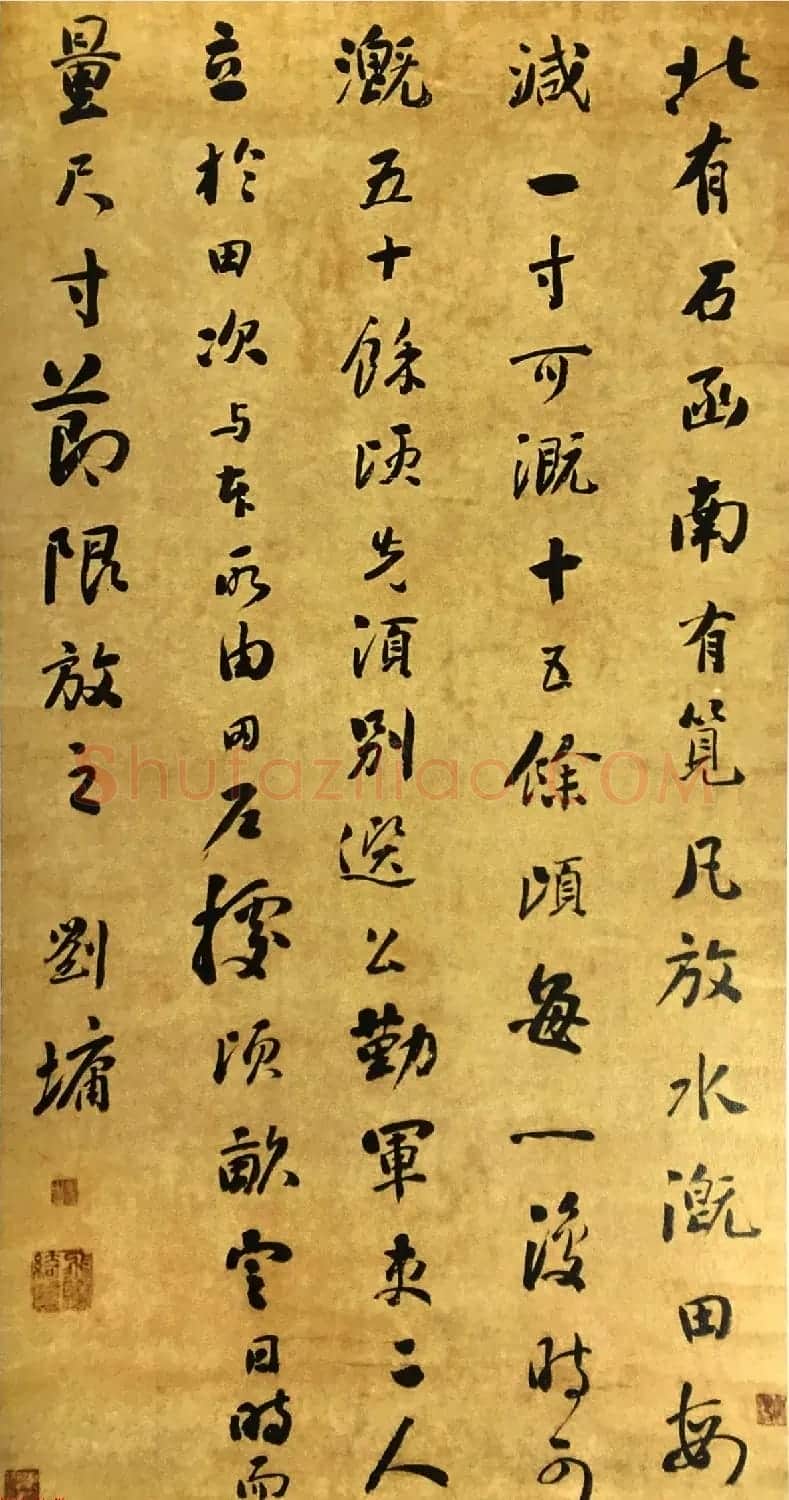 北有石函南有筧凡放水溉田每
減一寸可溉十五餘頃每一復時可
溉五十餘頃先須別選公勤軍吏二人
立於田次与本所由田戶據頃畝定日時而
量尺寸節限放之 劉墉
Shufaziliao.COM